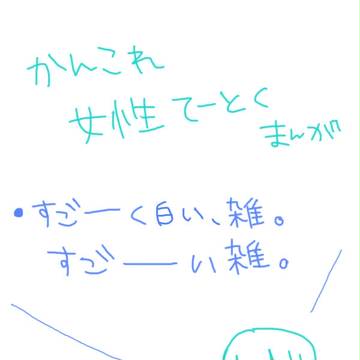 かんこれ
女性てーとく
まんが
・すごーく白い、雑。
すごーい雑。